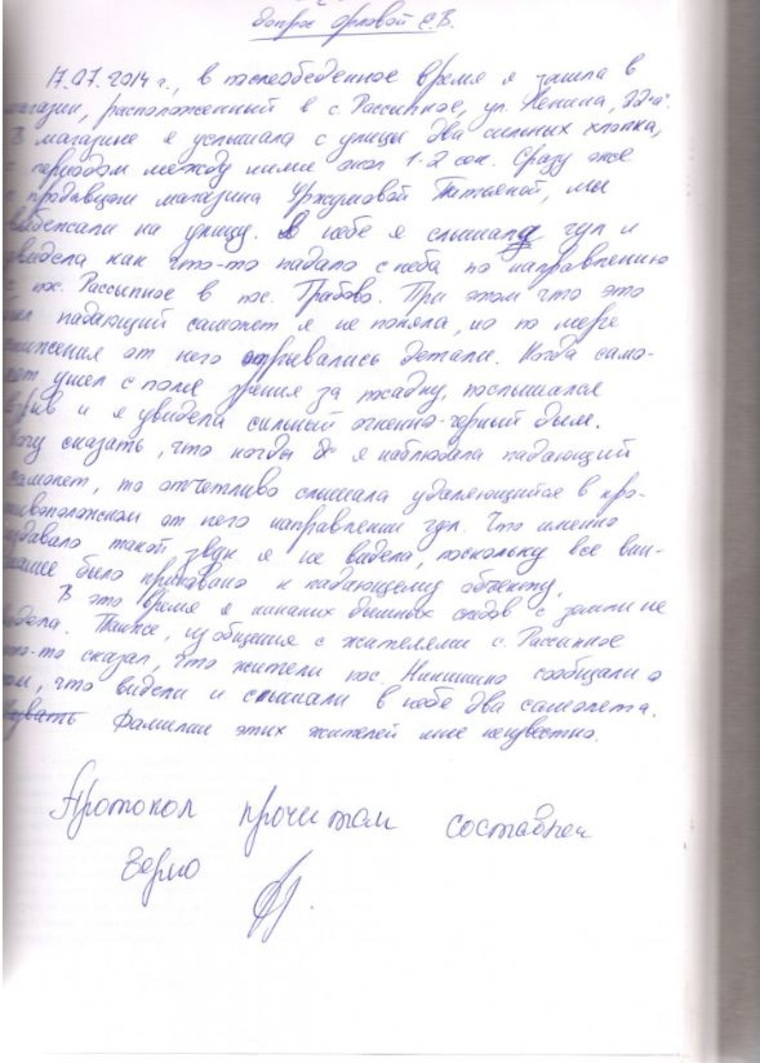 допрос Орловой С.В.
17.07.2014 г., в послеобеденное время я зашла в
магазин, расположенный в с. Рассыпное, ул. Ленина, 22"а".
В магазине я услышала с улицы два сильных хлопка,
с периодом между ними около 1-2 сек. Сразу же
с продавцом магазина Уржумовой Татьяной, мы
выбежали на улицу. В небе я слышала гул и
увидела как что-то падало с неба по направлению
с пос. Рассыпное в пос. Грабово. При этом что это
был падающий самолет я не поняла, но по мере
снижения от него отрывались детали. Когда само-
лет ушел с поля зрения за посадку, послышался
взрыв и я увидела сильный огненно-черный дым.
Могу сказать, что когда я наблюдала падающий
самолет, то отчетливо слышала удаляющийся в про-
тивоположном от него направлении гул. Что именно
издавало такой звук я не видела, поскольку все вни-
мание было приковано к падающему объекту.
В это время я никаких дымных следов с земли не
видела. Также, из общения с жителями с. Рассыпное
кто-то сказал, что жители пос. Никишино сообщали о
том, что видели и слышали в небе два самолета.
Фамилии этих жителей мне неизвестно.
Протокол прочитан составлен
верно